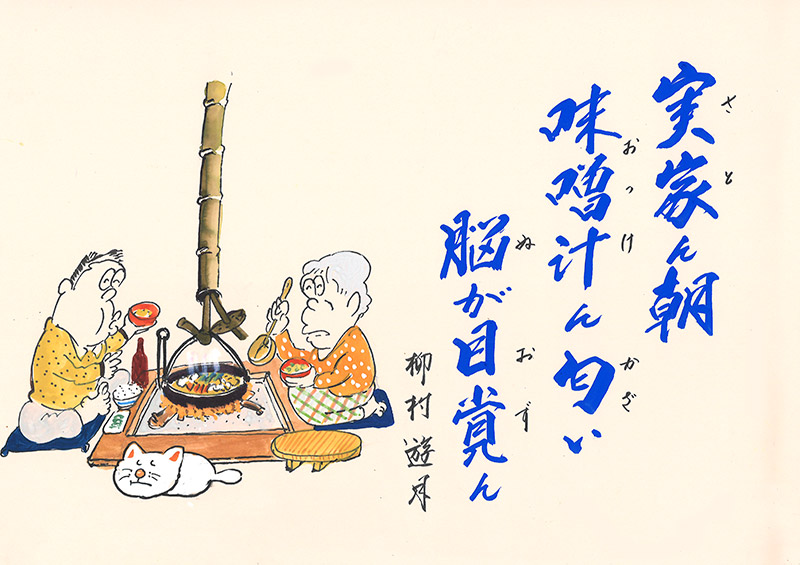 さと
実家ん朝
おっけ かざ
味噌汁ん匂い
ぬ おず
脳が目覚ん
柳村遊月